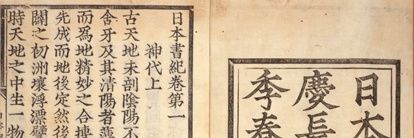 日本
慶長
季春
日本書紀卷第一
神代上
古天地未剖陰陽不
含牙及其清陽者薄
而爲地精妙之合搏
先成而地後定然後
闢之初洲壤浮漂譬
時天地之中生一物